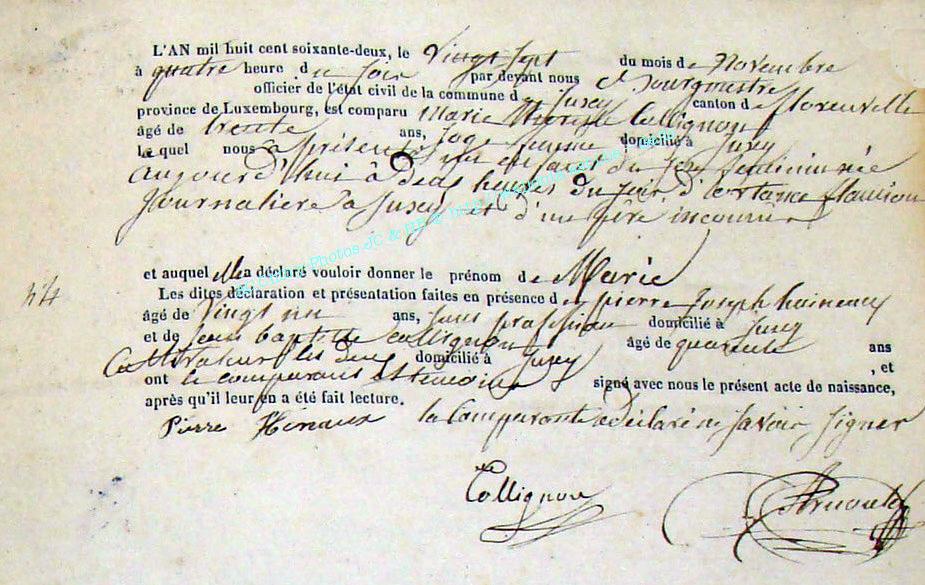 L'AN mil huit cent soixante-deux, le Vingt Sept du mois de Novembre
à quatre heure du Soir par devant nous Bourgmestre
officier de l'état civil de la commune de Jusey canton de florenville
province de Luxembourg, est comparu Marie Collignon
âgé de trente ans, Sage femme domicilié à Jusey
le quel nous a présenté un enfant du Sexe féminin née
aujourd'hui à deux heures du Soir, de
Journaliere à Jusey et d'un père inconnu
et auquel Elle a déclaré vouloir donner le prénom de Marie
44
Les dites déclaration et présentation faites en présence de pierre Joseph
âgé de Vingt un ans, Sans profession domicilié à Jusey
et de Jean baptiste Collignon âgé de quarante ans
Cultivateur les deux domicilié à Jusey , et
ont le comparant et temoins signé avec nous le présent acte de naissance,
après qu'il leur en a été fait lecture.
Pierre Hinaux la Comparante a Déclaré ne Savoir Signer
Collignon